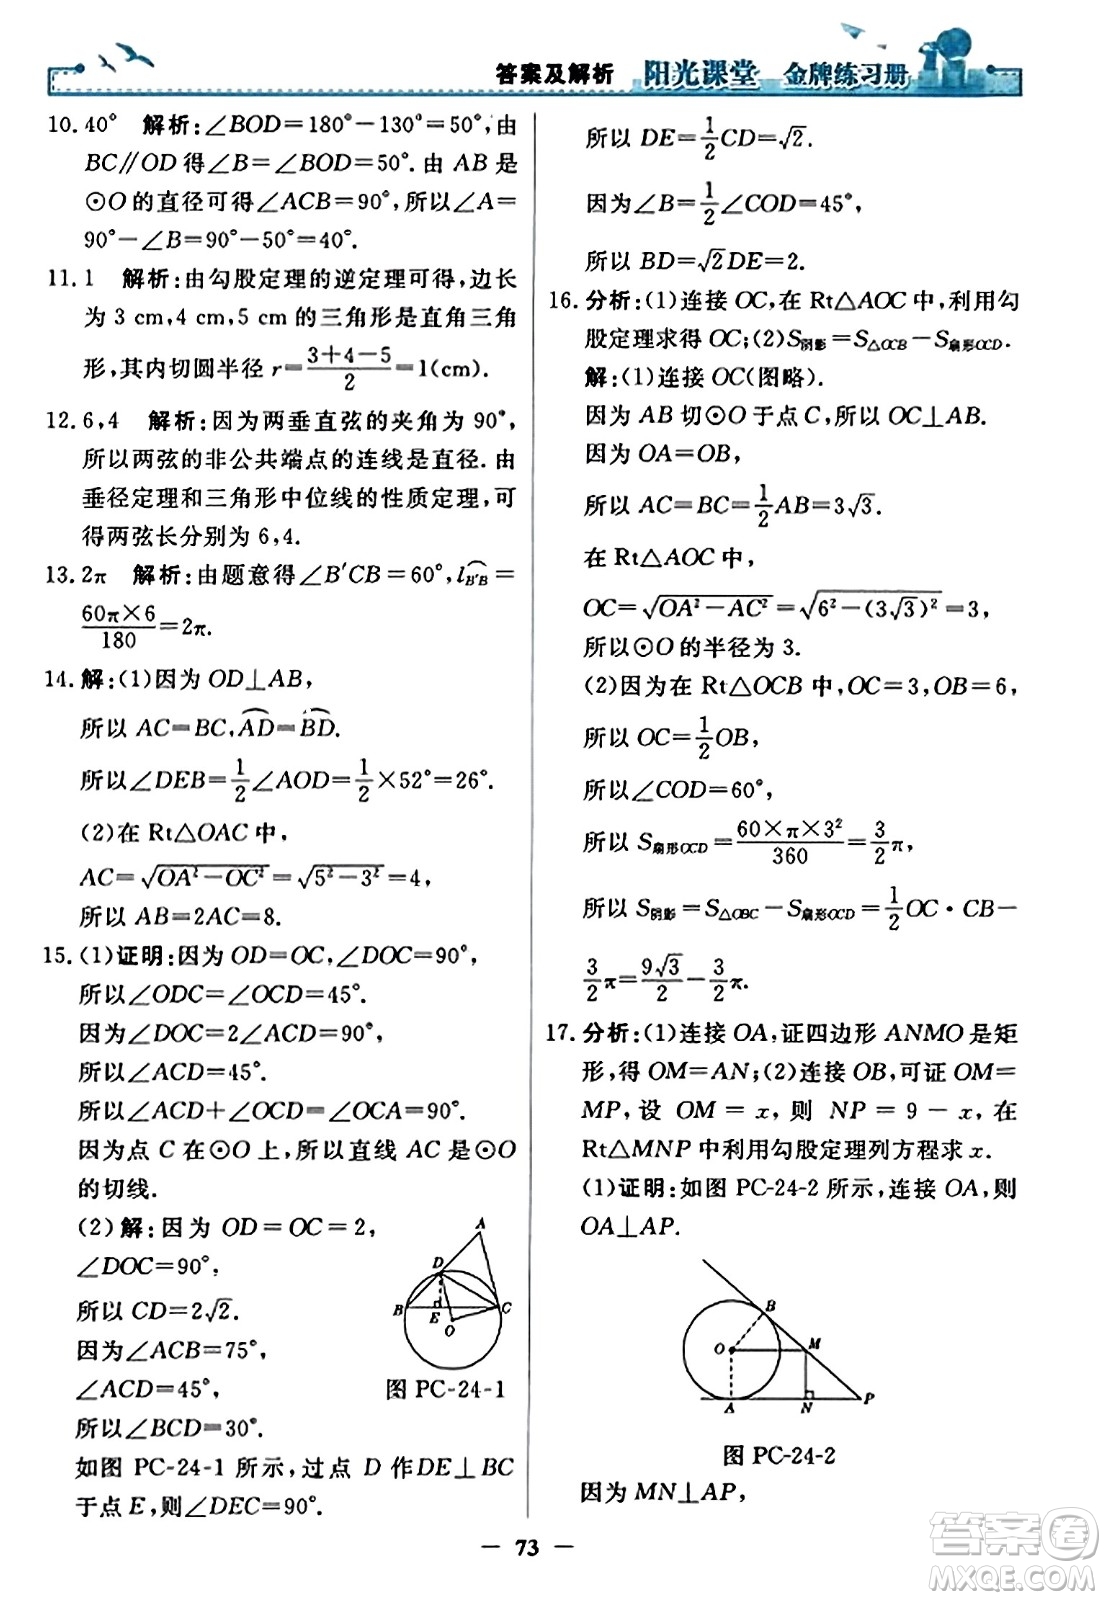 答案及解析 阳光课堂 金牌练习册
10. 40° 解析:∠BOD=180°-130°=50°,由
BC∥OD 得∠B=∠BOD=50°.由 AB 是
⊙O 的直径可得∠ACB=90°,所以∠A=
90°-∠B=90°-50°=40°.
11. 1 解析:由勾股定理的逆定理可得,边长
为 3 cm,4 cm,5 cm 的三角形是直角三角
形,其内切圆半径 r=(3+4-5)/2=1(cm).
12. 6,4 解析:因为两垂直弦的夹角为 90°,
所以两弦的非公共端点的连线是直径.由
垂径定理和三角形中位线的性质定理,可
得两弦长分别为 6,4.
13. 2π 解析:由题意得∠B′CB=60°,l⌒B′B=
(60π×6)/180=2π.
14. 解:(1)因为 OD⊥AB,
所以 AC=BC,⌒AD=⌒BD.
所以∠DEB=1/2∠AOD=1/2×52°=26°.
(2)在 Rt△OAC 中,
AC=√(OA²-OC²)=√(5²-3²)=4,
所以 AB=2AC=8.
15. (1)证明:因为 OD=OC,∠DOC=90°,
所以∠ODC=∠OCD=45°.
因为∠DOC=2∠ACD=90°,
所以∠ACD=45°.
所以∠ACD+∠OCD=∠OCA=90°.
因为点 C 在⊙O 上,所以直线 AC 是⊙O
的切线.
(2)解:因为 OD=OC=2,
∠DOC=90°,
所以 CD=2√2.
因为∠ACB=75°,
∠ACD=45°,
所以∠BCD=30°.
A
D
B
E
C
O
图 PC-24-1
如图 PC-24-1 所示,过点 D 作DE⊥BC
于点 E,则∠DEC=90°.
所以 DE=1/2CD=√2.
因为∠B=1/2∠COD=45°,
所以 BD=√2DE=2.
16. 分析:(1)连接 OC,在 Rt△AOC 中,利用勾
股定理求得 OC;(2)S阴影=S△OCB-S扇形OCD.
解:(1)连接 OC(图略).
因为 AB 切⊙O 于点 C,所以 OC⊥AB.
因为 OA=OB,
所以 AC=BC=1/2AB=3√3.
在 Rt△AOC 中,
OC=√(OA²-AC²)=√(6²-(3√3)²)=3,
所以⊙O 的半径为 3.
(2)因为在 Rt△OCB 中,OC=3,OB=6,
所以 OC=1/2OB,
所以∠COD=60°,
所以 S扇形OCD=(60×π×3²)/360=3/2π,
所以 S阴影=S△OBC-S扇形OCD=1/2OC·CB-
3/2π=9√3/2-3/2π.
17. 分析:(1)连接 OA,证四边形 ANMO 是矩
形,得 OM=AN;(2)连接 OB,可证 OM=
MP,设 OM=x,则 NP=9-x,在
Rt△MNP 中利用勾股定理列方程求 x.
(1)证明:如图 PC-24-2 所示,连接 OA,则
OA⊥AP.
B
O
M
A
N
P
图 PC-24-2
因为 MN⊥AP,
73
答案卷
MXQE.COM